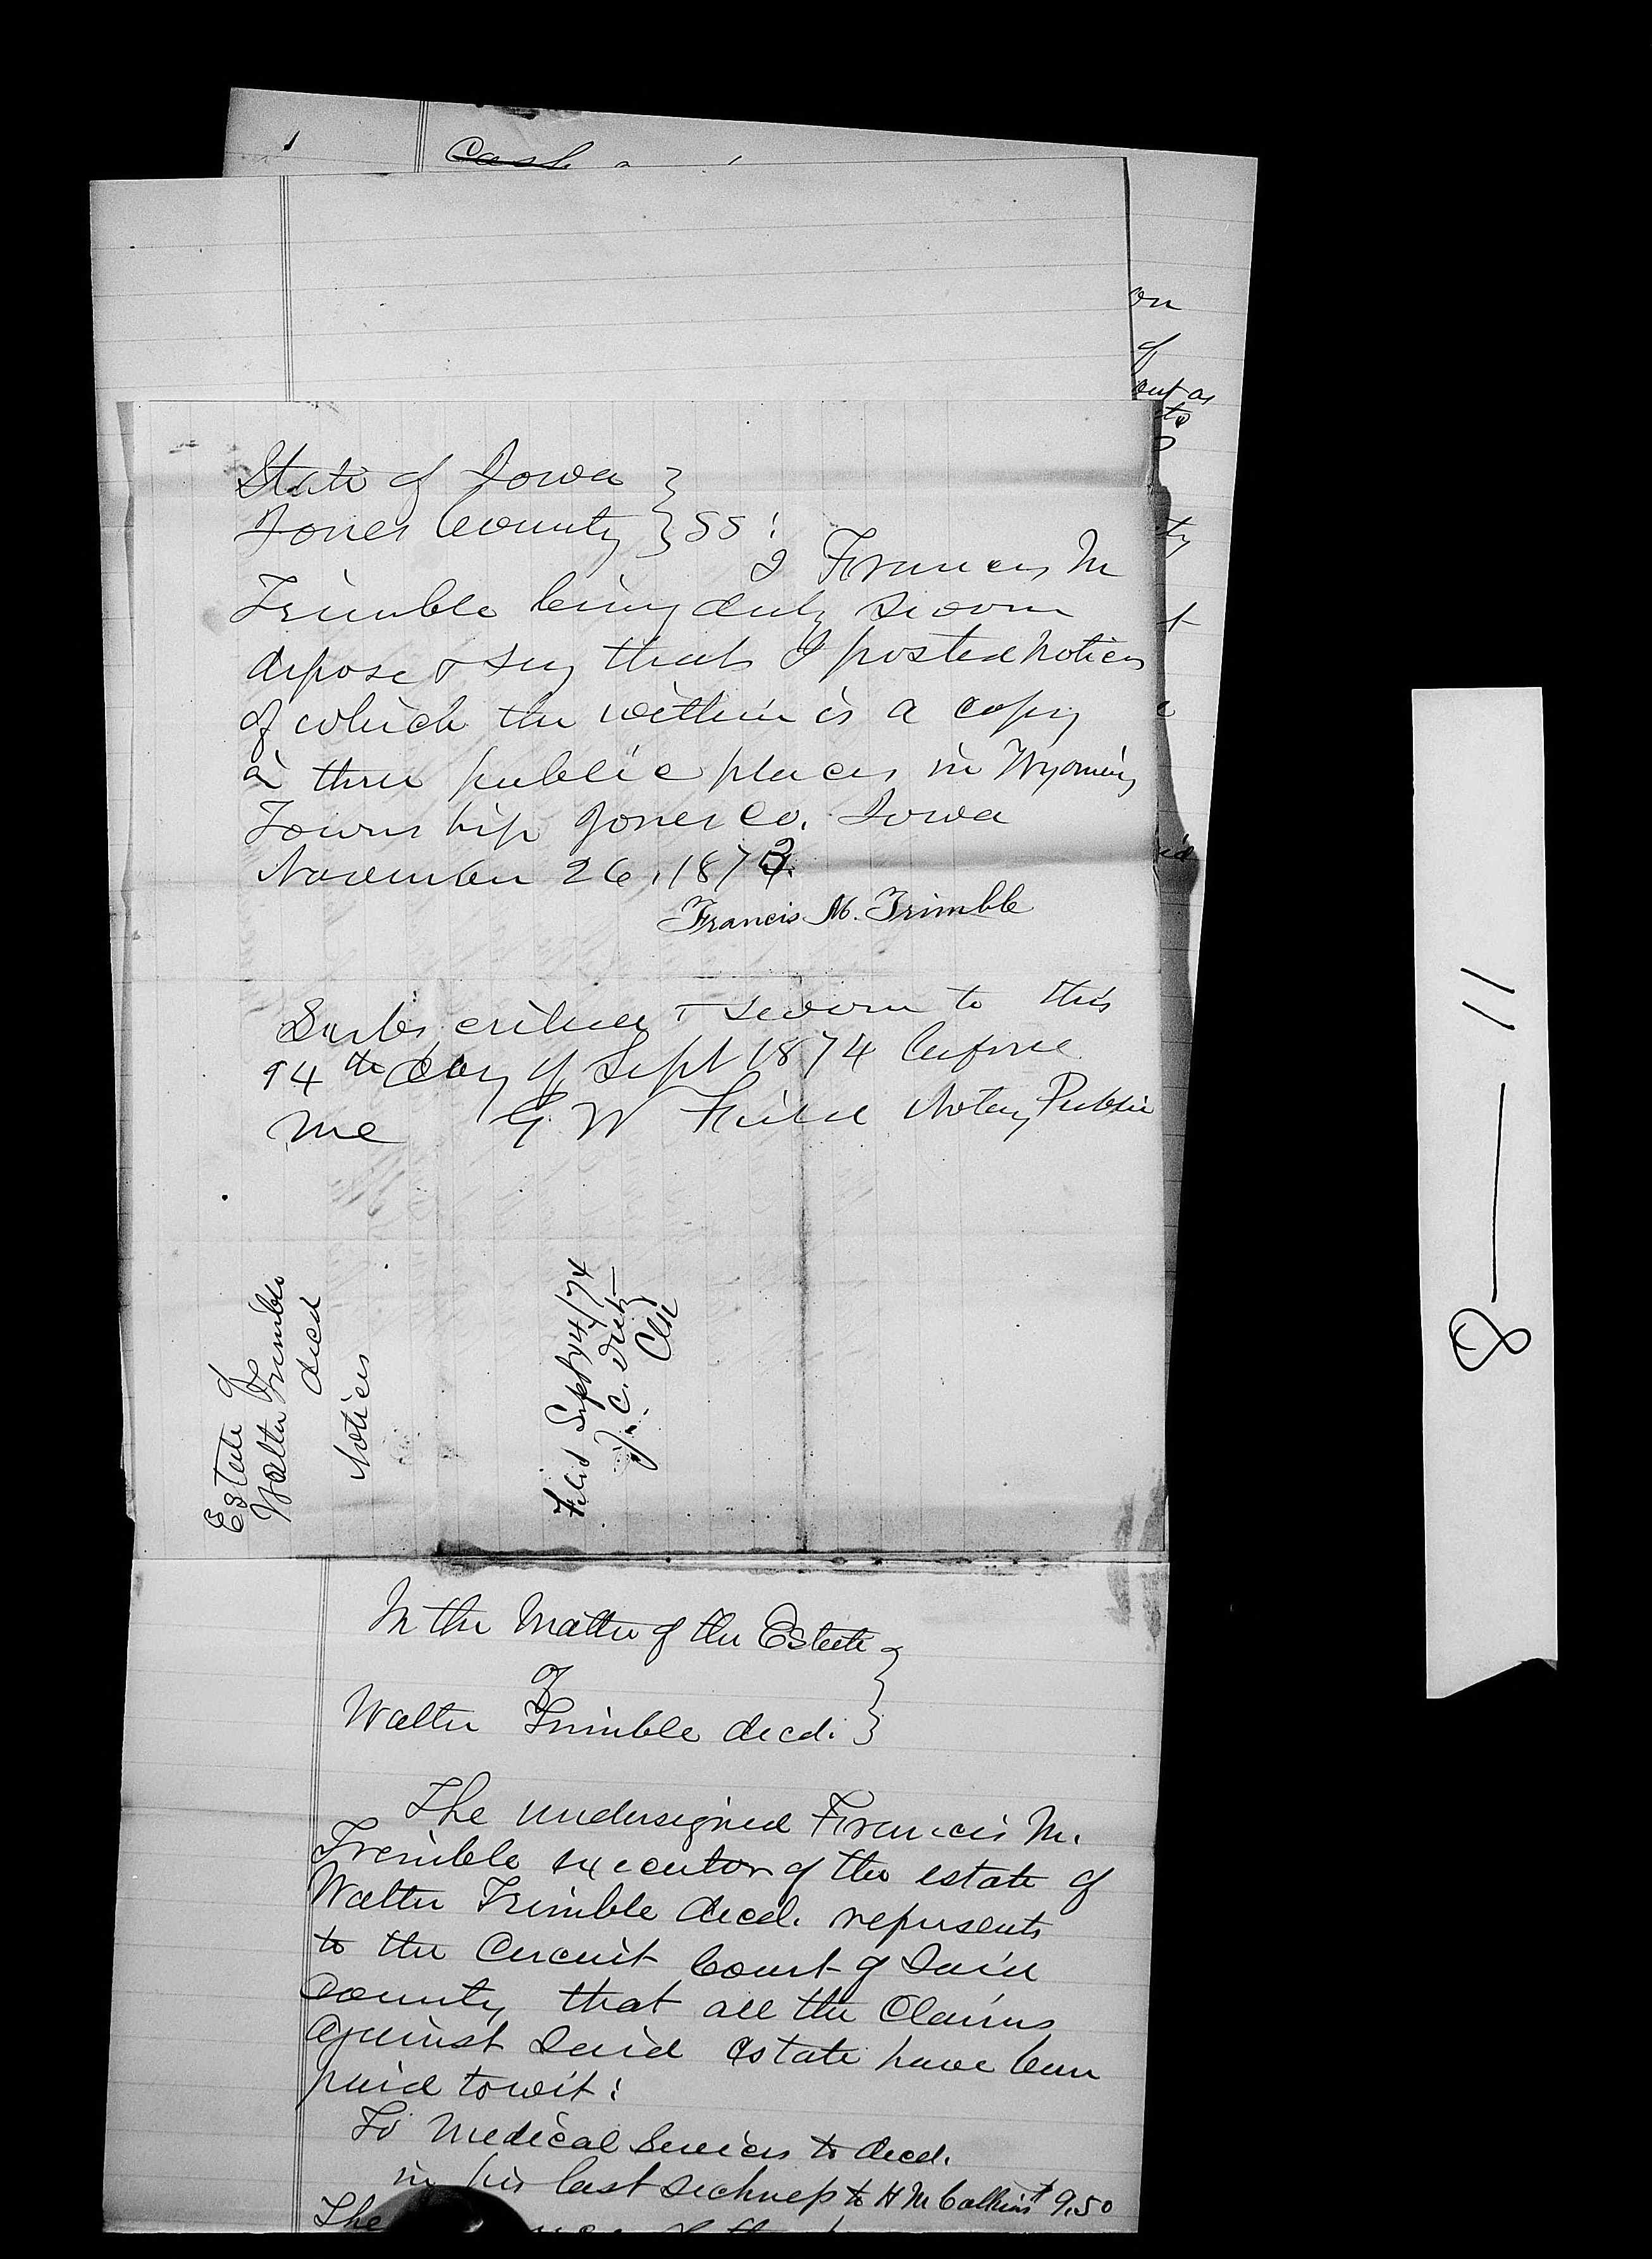 Cash
on
of
out as
to
ty
State of Iowa }
Jones County } SS:
I Francis M
Trimble being duly sworn
depose & say that I posted notices
of which the within is a copy
in three public places in Wyoming
Township Jones Co. Iowa
November 26, 1873.
Francis M. Trimble
Subscribed & sworn to this
14th day of Sept 1874 before
me G. W. Field Notary Public
Estate of
Walter Trimble
decd
Notices
Filed Sept 14/74
J. C. Dietz
Clk
In the Matter of the Estate }
of
Walter Trimble decd. }
The undersigned Francis M.
Trimble executor of the estate of
Walter Trimble decd. represents
to the Circuit Court of said
County that all the Claims
against said estate have been
paid towit:
To Medical Services to decd.
in his last sickness to H M Calkins $9.50
The
8 — 11